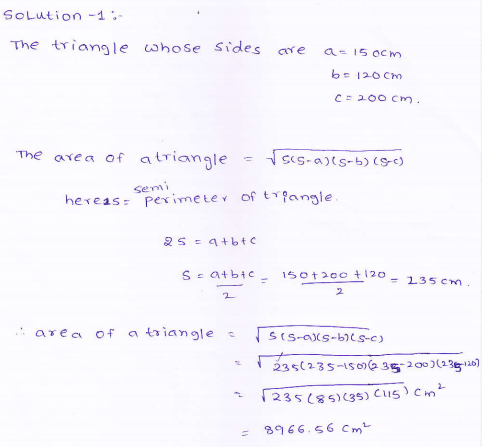 Solution -1 :-
The triangle whose sides are a= 150cm
b= 120cm
c= 200 cm.
The area of a triangle = √s(s-a)(s-b)(s-c)
here 2s = semi perimeter of triangle.
2s = a+b+c
s = a+b+c/2 = 150+200+120/2 = 235 cm.
∴ area of a triangle = √s(s-a)(s-b)(s-c)
= √235(235-150)(235-200)(235-120)
= √235(85)(35)(115) cm²
= 8966.56 cm²